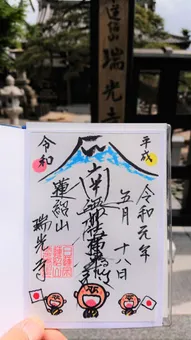 蓮紹山 瑞光寺
平成
令和
令和元年
五月十八日
南無妙法蓮華経
蓮紹山
瑞光寺